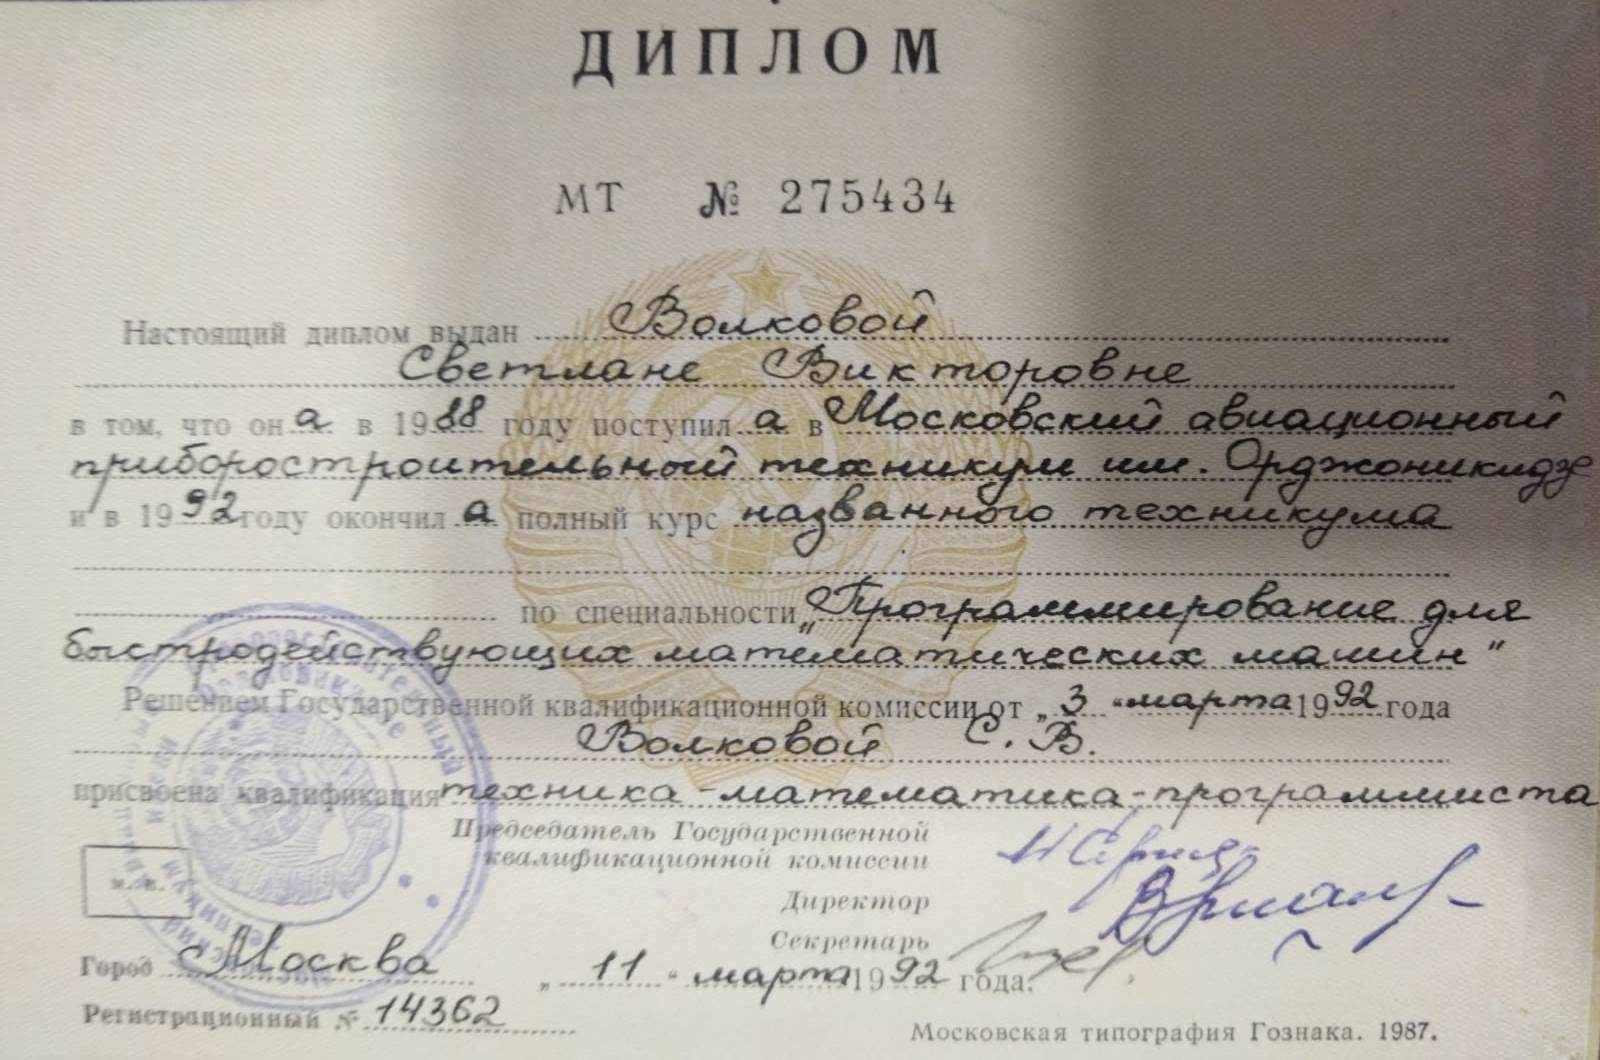 ДИПЛОМ
МТ № 275434
Настоящий диплом выдан Волковой
Светлане Викторовне
в том, что он а в 1988 году поступил а в Московский авиационный
приборостроительный техникум им. Орджоникидзе
и в 1992 году окончил а полный курс названного техникума
по специальности „Программирование для
быстродействующих математических машин"
Решением Государственной квалификационной комиссии от „3" марта 1992 года
Волковой С. В.
присвоена квалификация техника-математика-программиста
Председатель Государственной
квалификационной комиссии
Директор
Секретарь
м. п.
Город Москва „11" марта 1992 года.
Регистрационный № 14362
Московская типография Гознака. 1987.